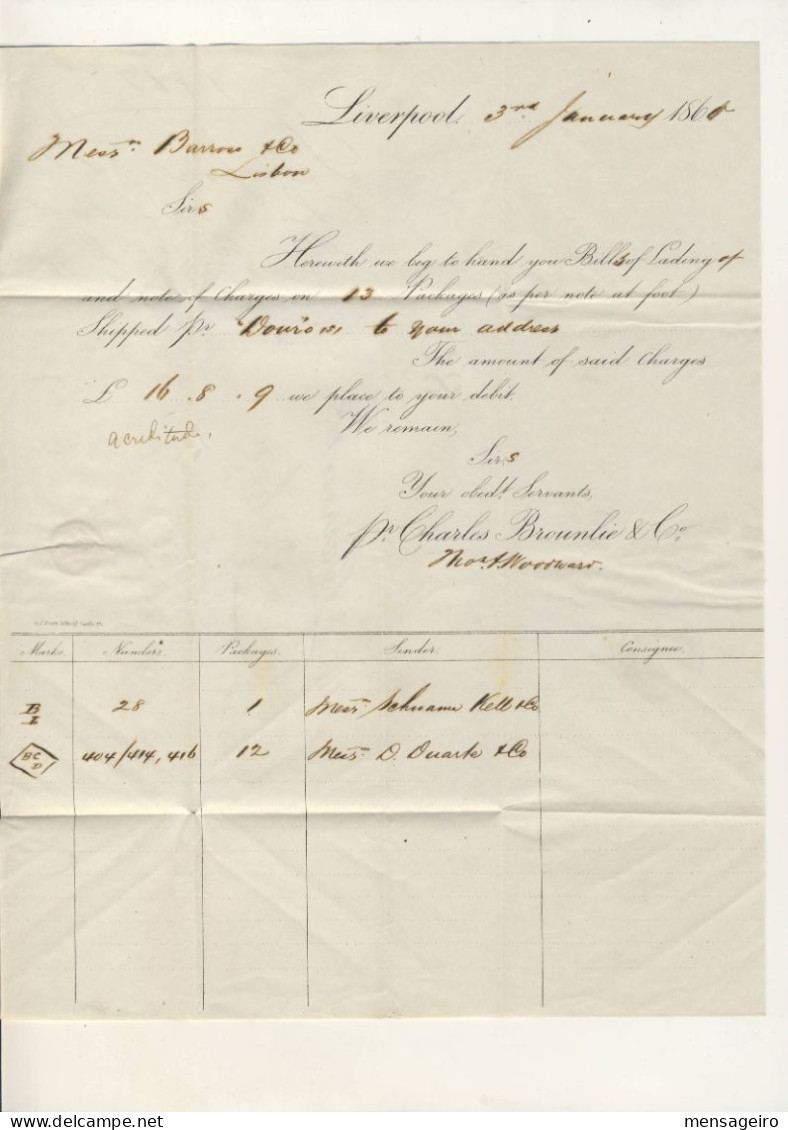 Liverpool, 3rd January 1860
Messrs Barrow & Co
Lisbon
Sirs
Herewith we beg to hand you Bills of Lading of
and note of Charges on 13 Packages (as per note at foot)
Shipped pr Douro to your address
The amount of said Charges
£ 16.8.9 we place to your debit.
acreditado,
We remain,
Sirs
Your obedt. Servants,
pr Charles Brownlie & Co.
Thos. A. Woodward.
Marks. Numbers. Packages. Sender. Consignee.
B/L 28 1 Messrs Schwann Kell & Co
BC/D 404/414, 416 12 Messrs D. Duarte & Co
mensageiro